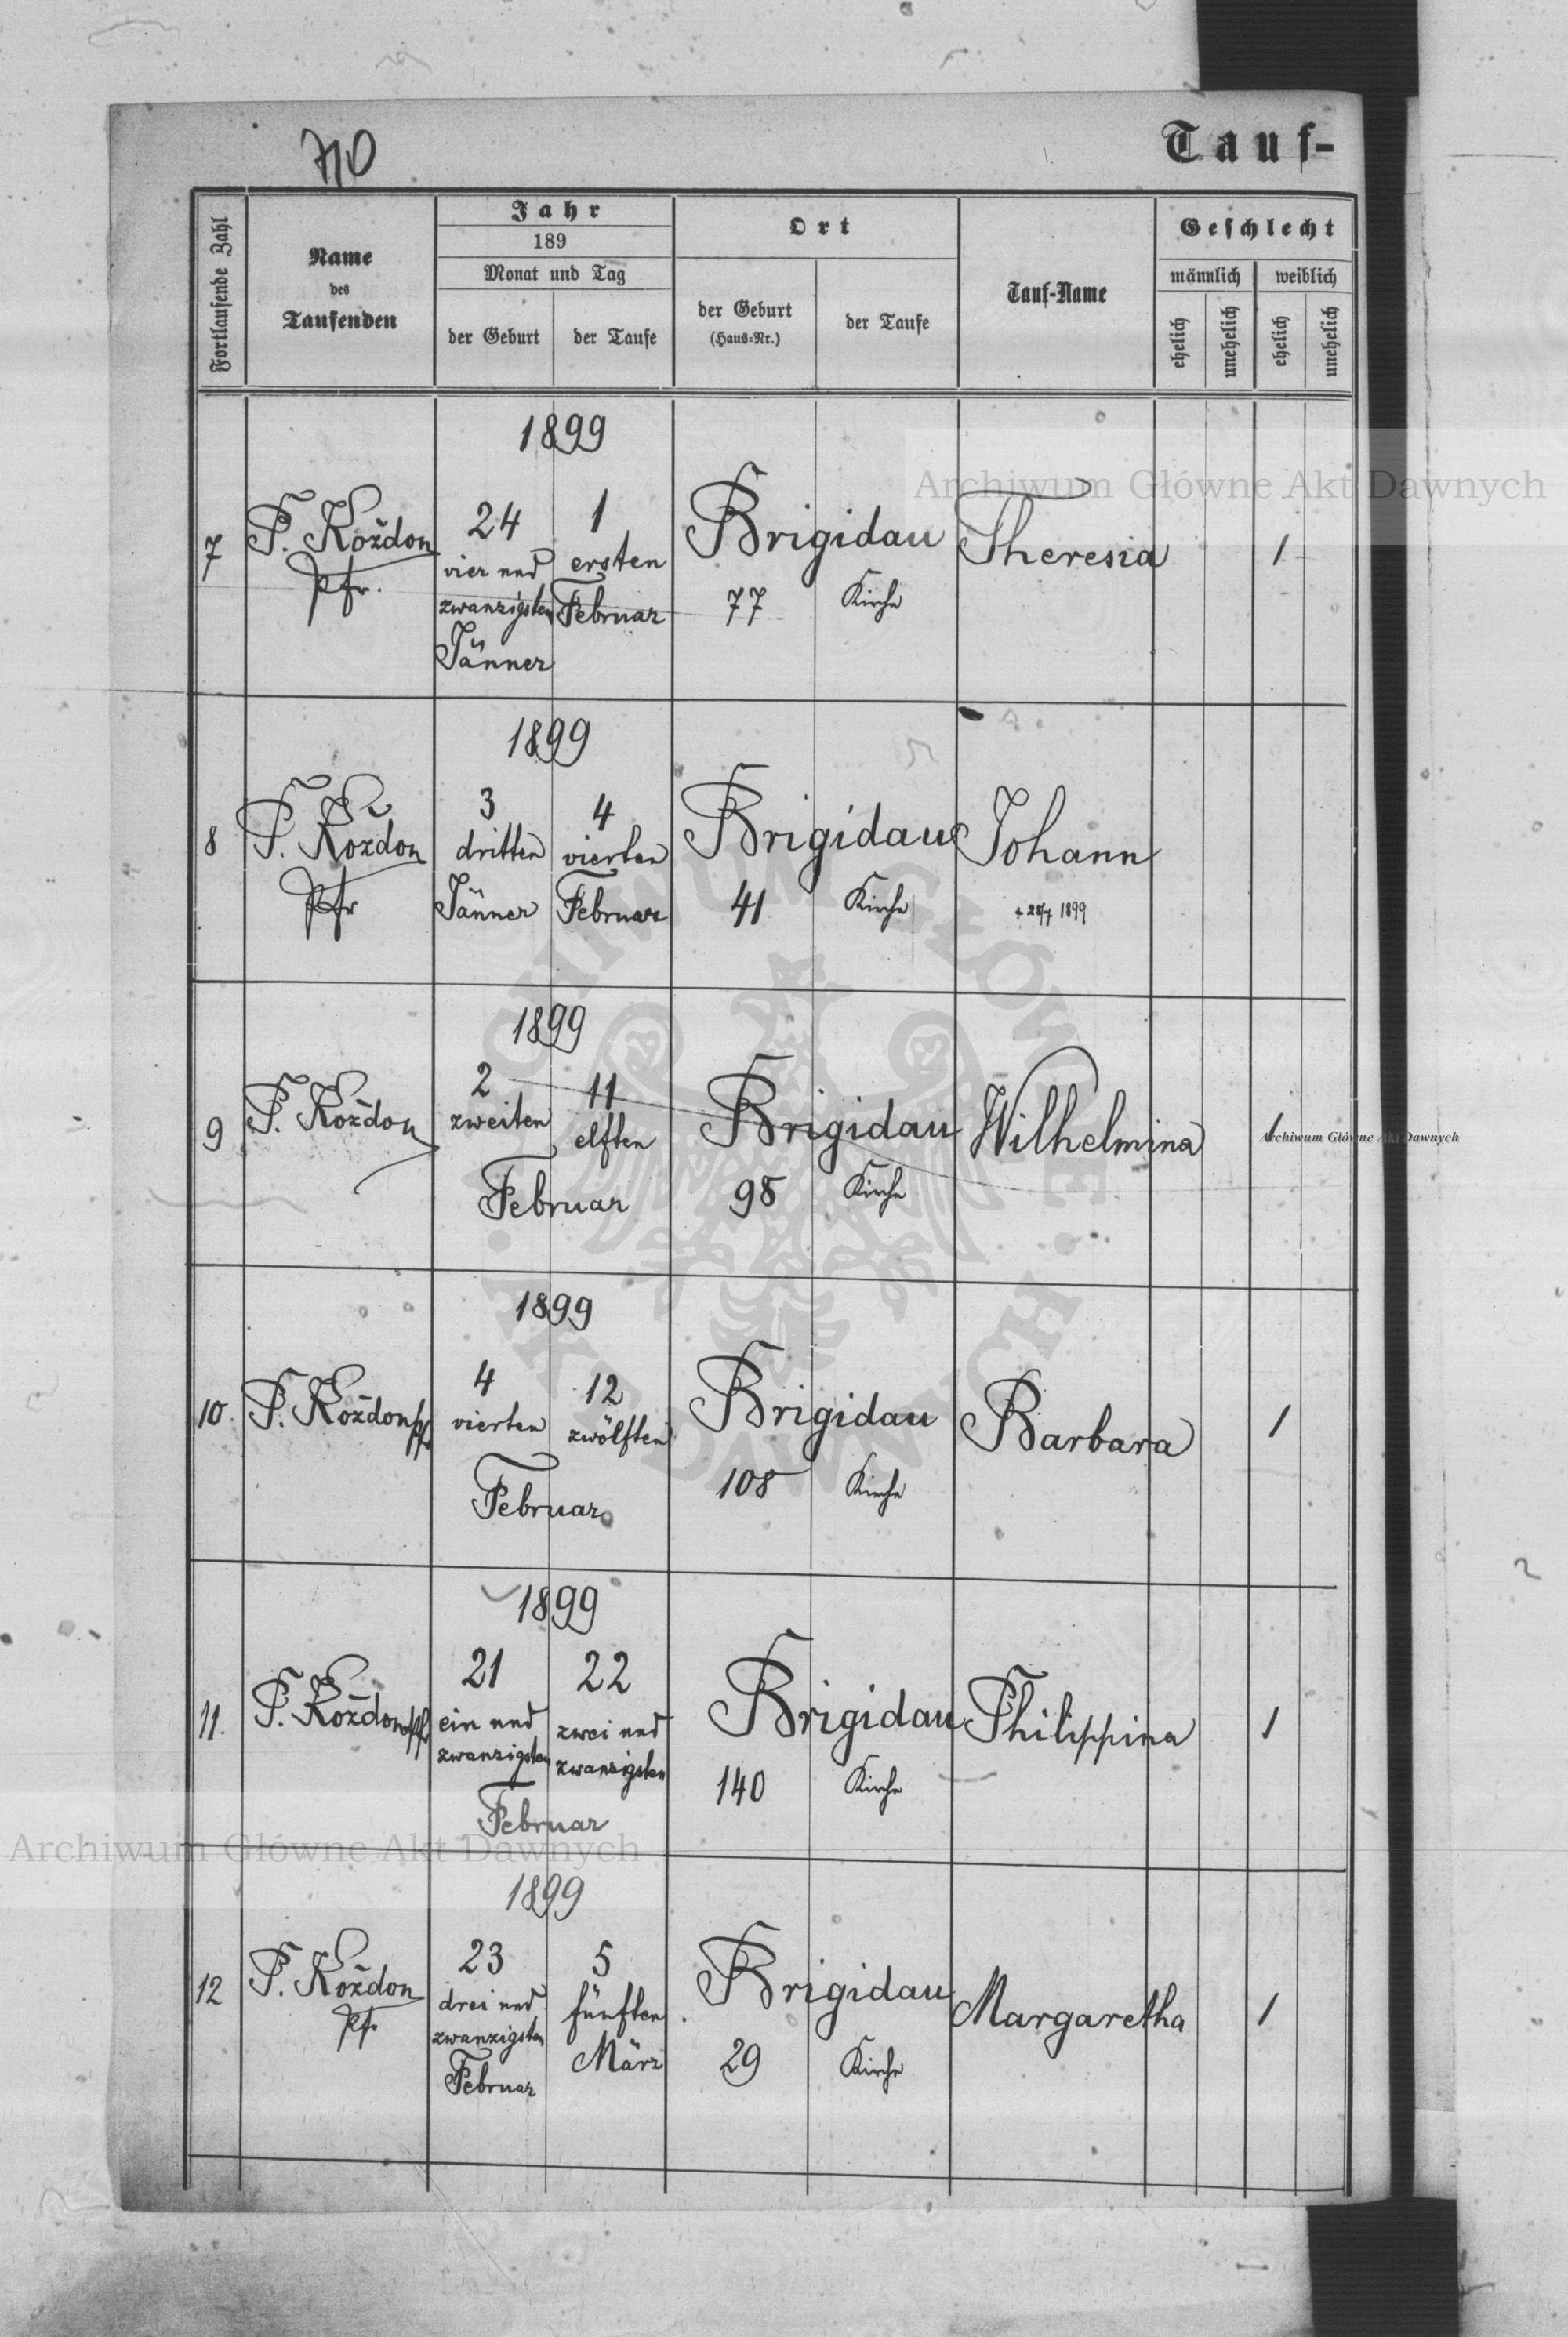 710
Tauf-
Fortlaufende Zahl
Name
des
Taufenden
Jahr
189
Monat und Tag
der Geburt
der Taufe
Ort
der Geburt
(Haus-Nr.)
der Taufe
Tauf-Name
Geschlecht
männlich
weiblich
ehelich
unehelich
ehelich
unehelich
Archiwum Główne Akt Dawnych
1899
7
P. Koždon
Pfr.
24
vier und
zwanzigsten
Jänner
1
ersten
Februar
Brigidau
77
Kirche
Theresia
1
1899
8
P. Koždon
Pfr
3
dritten
Jänner
4
vierten
Februar
Brigidau
41
Kirche
Johann
+ 28/7 1899
1899
9
P. Koždon
2
zweiten
11
elften
Februar
Brigidau
98
Kirche
Wilhelmina
1
Archiwum Główne Akt Dawnych
1899
10
P. Koždon Pf
4
vierten
12
zwölften
Februar
Brigidau
108
Kirche
Barbara
1
1899
11.
P. Koždon Pf
21
ein und
zwanzigsten
22
zwei und
zwanzigsten
Februar
Brigidau
140
Kirche
Philippina
1
Archiwum Główne Akt Dawnych
1899
12
P. Koždon
Pf.
23
drei und
zwanzigsten
Februar
5
fünften
März
Brigidau
29
Kirche
Margaretha
1
ARCHIWUM GŁÓWNE · AKT DAWNYCH ·